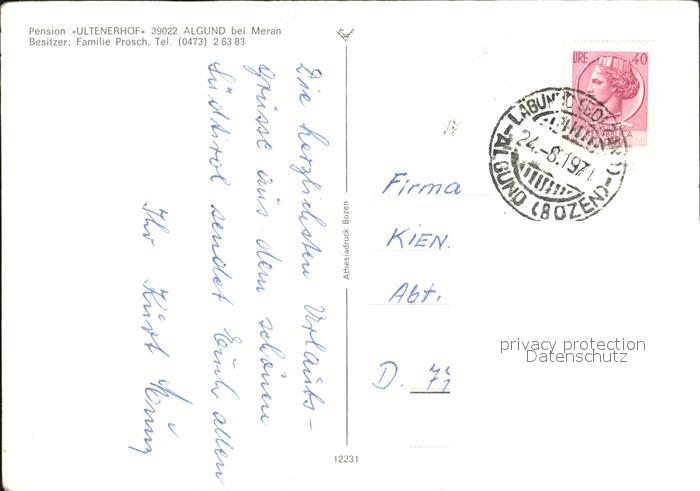 Pension »ULTENERHOF« 39022 ALGUND bei Meran
Besitzer: Familie Prosch, Tel. (0473) 2 63 83
Die herzlichsten Urlaubs-
grüsse aus dem schönen
Südtirol sendet Euch allen
Ihr Kurt
Athesiadruck Bozen
12231
LIRE 40
ALGUND (BOZEN)
24.-8.1971
Firma
KIEN.
Abt.
D. 7
privacy protection
Datenschutz